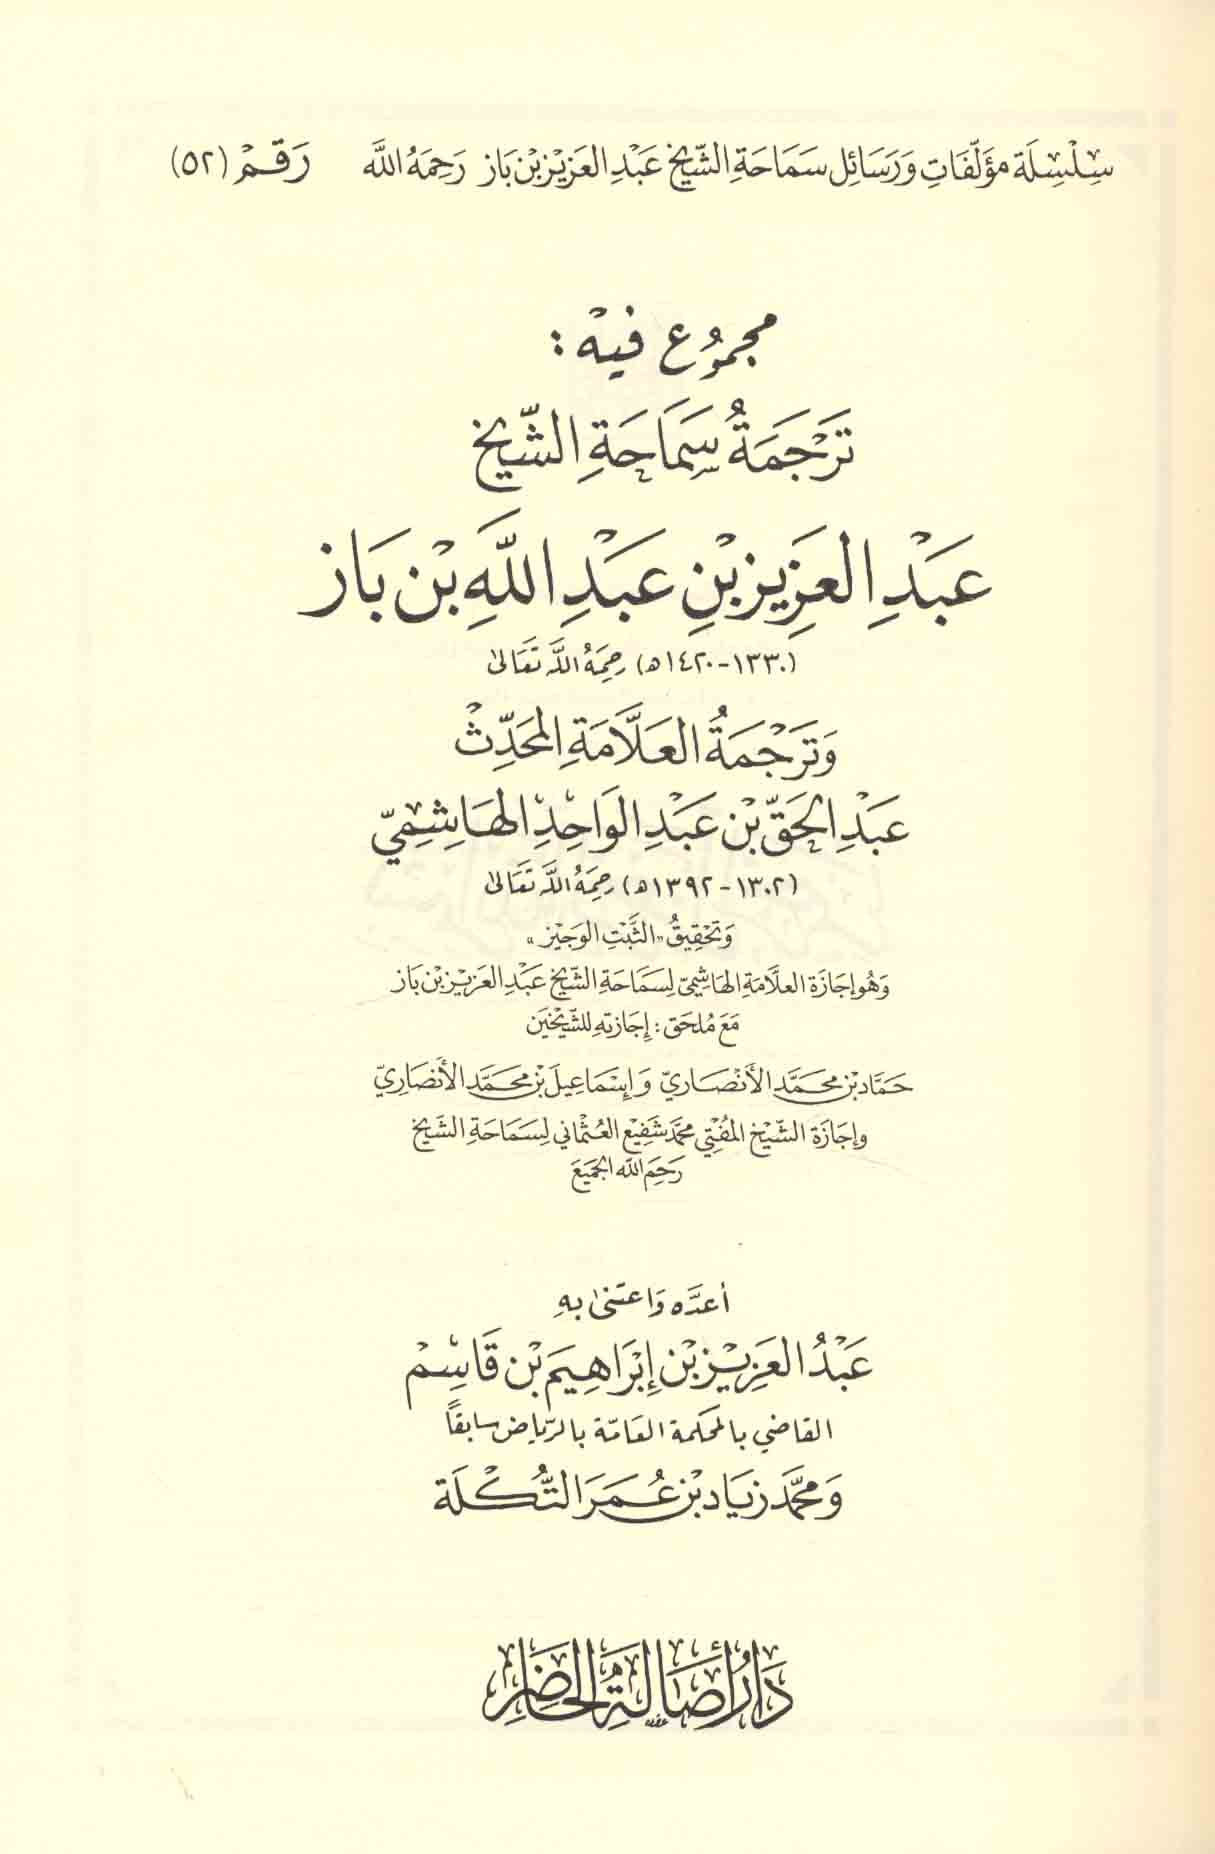 سِلْسِلَة مؤَلّفَاتِ وَرَسَائِل سَمَاحَةِ الشّيخ عَبْدِ العَزِيْز بْن بَاز رَحِمَهُ اللَّه رَقَمْ (٥٢)
مجمُوع فيْه :
تَرْجَمَةُ سَمَاحَةِ الشّيخ
عَبْدِ العَزِيز بْنِ عَبْدِ اللَّهِ بْن بَاز
(١٣٣٠-١٤٢٠ه) رحِمَهُ اللَّه تَعَالىٰ
وَتَرْجَمَةُ العَلَّامَةِ المحَدِّثْ
عَبْدِ الحَقّ بْن عَبْدِ الوَاحِدِ الهَاشِمِيّ
(١٣٠٢-١٣٩٢ه) رحِمَهُ اللَّه تَعَالىٰ
وَتحْقِيقُ «الثَّبْتِ الوَجِيْز»
وَهُو إجَازَة العلَّامَةِ الهَاشِميّ لِسَمَاحَةِ الشّيخ عَبْدِ العَزيْز بْن بَاز
مَعَ مُلحَق : إجَازتهِ للشَّيْخَين
حَمَّاد بْن محَمَّد الأَنْصَاريّ وَإسْمَاعِيلَ بْن محَمَّد الأنصَاريّ
وإجَازَة الشّيْخ المُفْتِي محمَّد شَفِيْع العُثْمَاني لِسَمَاحَةِ الشَّيخ
رَحِمَ اللَّه الجَميْعَ
أعدَّه وَاعتنىٰ بهِ
عَبْدُ العَزِيْز بْن إبْرَاهِيم بْن قَاسِمْ
القاضي بالمحكمة العَامّة بالرّياض سابقاً
وَمحمَّد زيَاد بْن عُمَر التُّكْلَة
دَارُ أصَالَةِ الحَاضِر